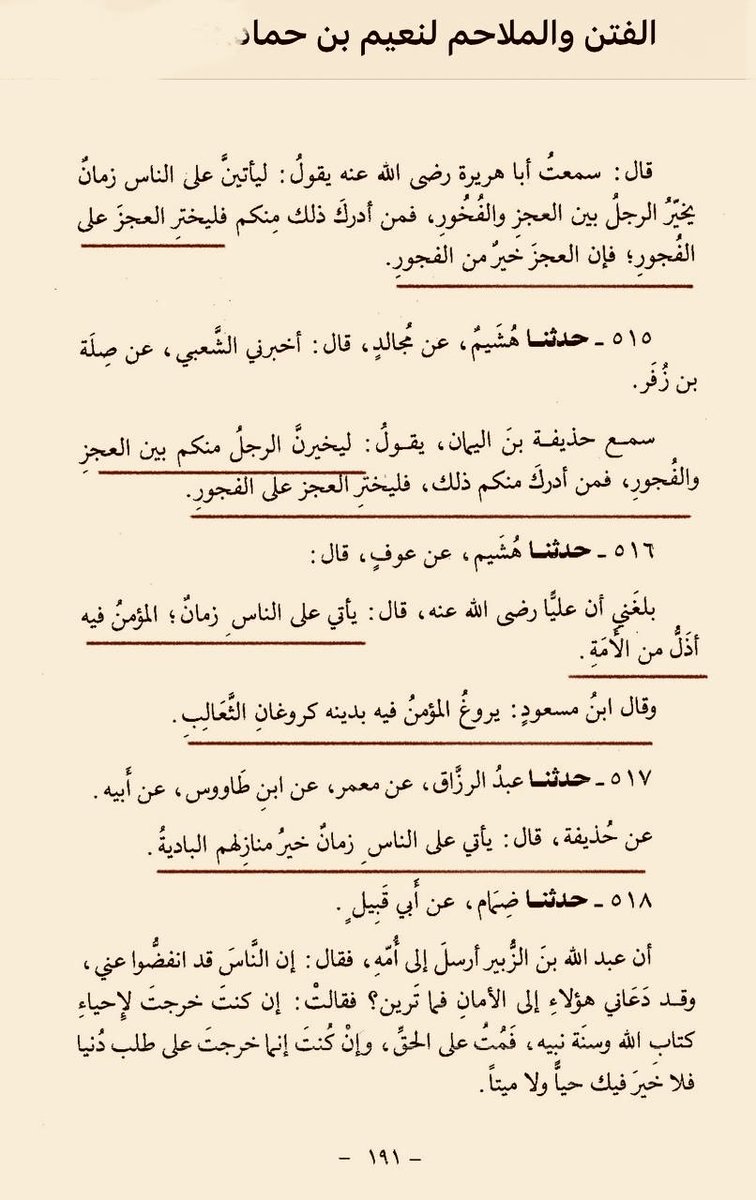 الفتن والملاحم لنعيم بن حماد
قال: سمعتُ أبا هريرة رضى الله عنه يقولُ: ليأتينَّ على الناس زمانٌ
يخيَّرُ الرجلُ بين العجزِ والفُخُورِ، فمن أدركَ ذلك مِنكم فليخترِ العجزَ على
الفُجورِ؛ فإن العجزَ خيرٌ من الفجورِ.
٥١٥ ـ حدثنـا هُشَيمٌ، عن مُجالدٍ، قال: أخبرني الشَّعبي، عن صِلَة
بن زُفَر.
سمـع حذيفـة بنَ اليمان، يقـولُ: ليخيرنَّ الرجلُ منكم بين العجزِ
والفُجورِ، فمن أدركَ منكم ذلك، فليخترِ العجز على الفجورِ.
٥١٦ ـ حدثنـا هُشَيم، عن عوفٍ، قال:
بلغَني أن عليًّا رضى الله عنه، قال: يأتي على الناسِ زمانٌ؛ المؤمنُ فيه
أذَلُّ من الأَمَةِ.
وقال ابنُ مسعودٍ: يروغُ المؤمنُ فيه بدينه كروغانِ الثَّعَالِبِ.
٥١٧ ـ حدثنـا عبدُ الرزَّاق، عن معمر، عن ابنِ طَاووس، عن أَبيه.
عن حُذيفة، قال: يأتي على الناسِ زمانٌ خيرُ منازِلهم الباديةُ.
٥١٨ ـ حدثنـا ضِمَام، عن أَبي قَبِيلٍ.
أن عبد الله بنَ الزُّبير أرسلَ إلى أُمّهِ، فقال: إن النَّاسَ قد انفضُّوا عني،
وقـد دَعَاني هؤلاءِ إلى الأمانِ فما تَرين؟ فقالتْ: إن كنتَ خرجتَ لإِحياءِ
كتابِ الله وسنَة نبيه، فَمُتُ على الحقِّ، وإنْ كُنتَ إنما خرجتَ على طلب دُنيا
فلا خَيرَ فيك حياًّ ولا ميتاً.
– ١٩١ –